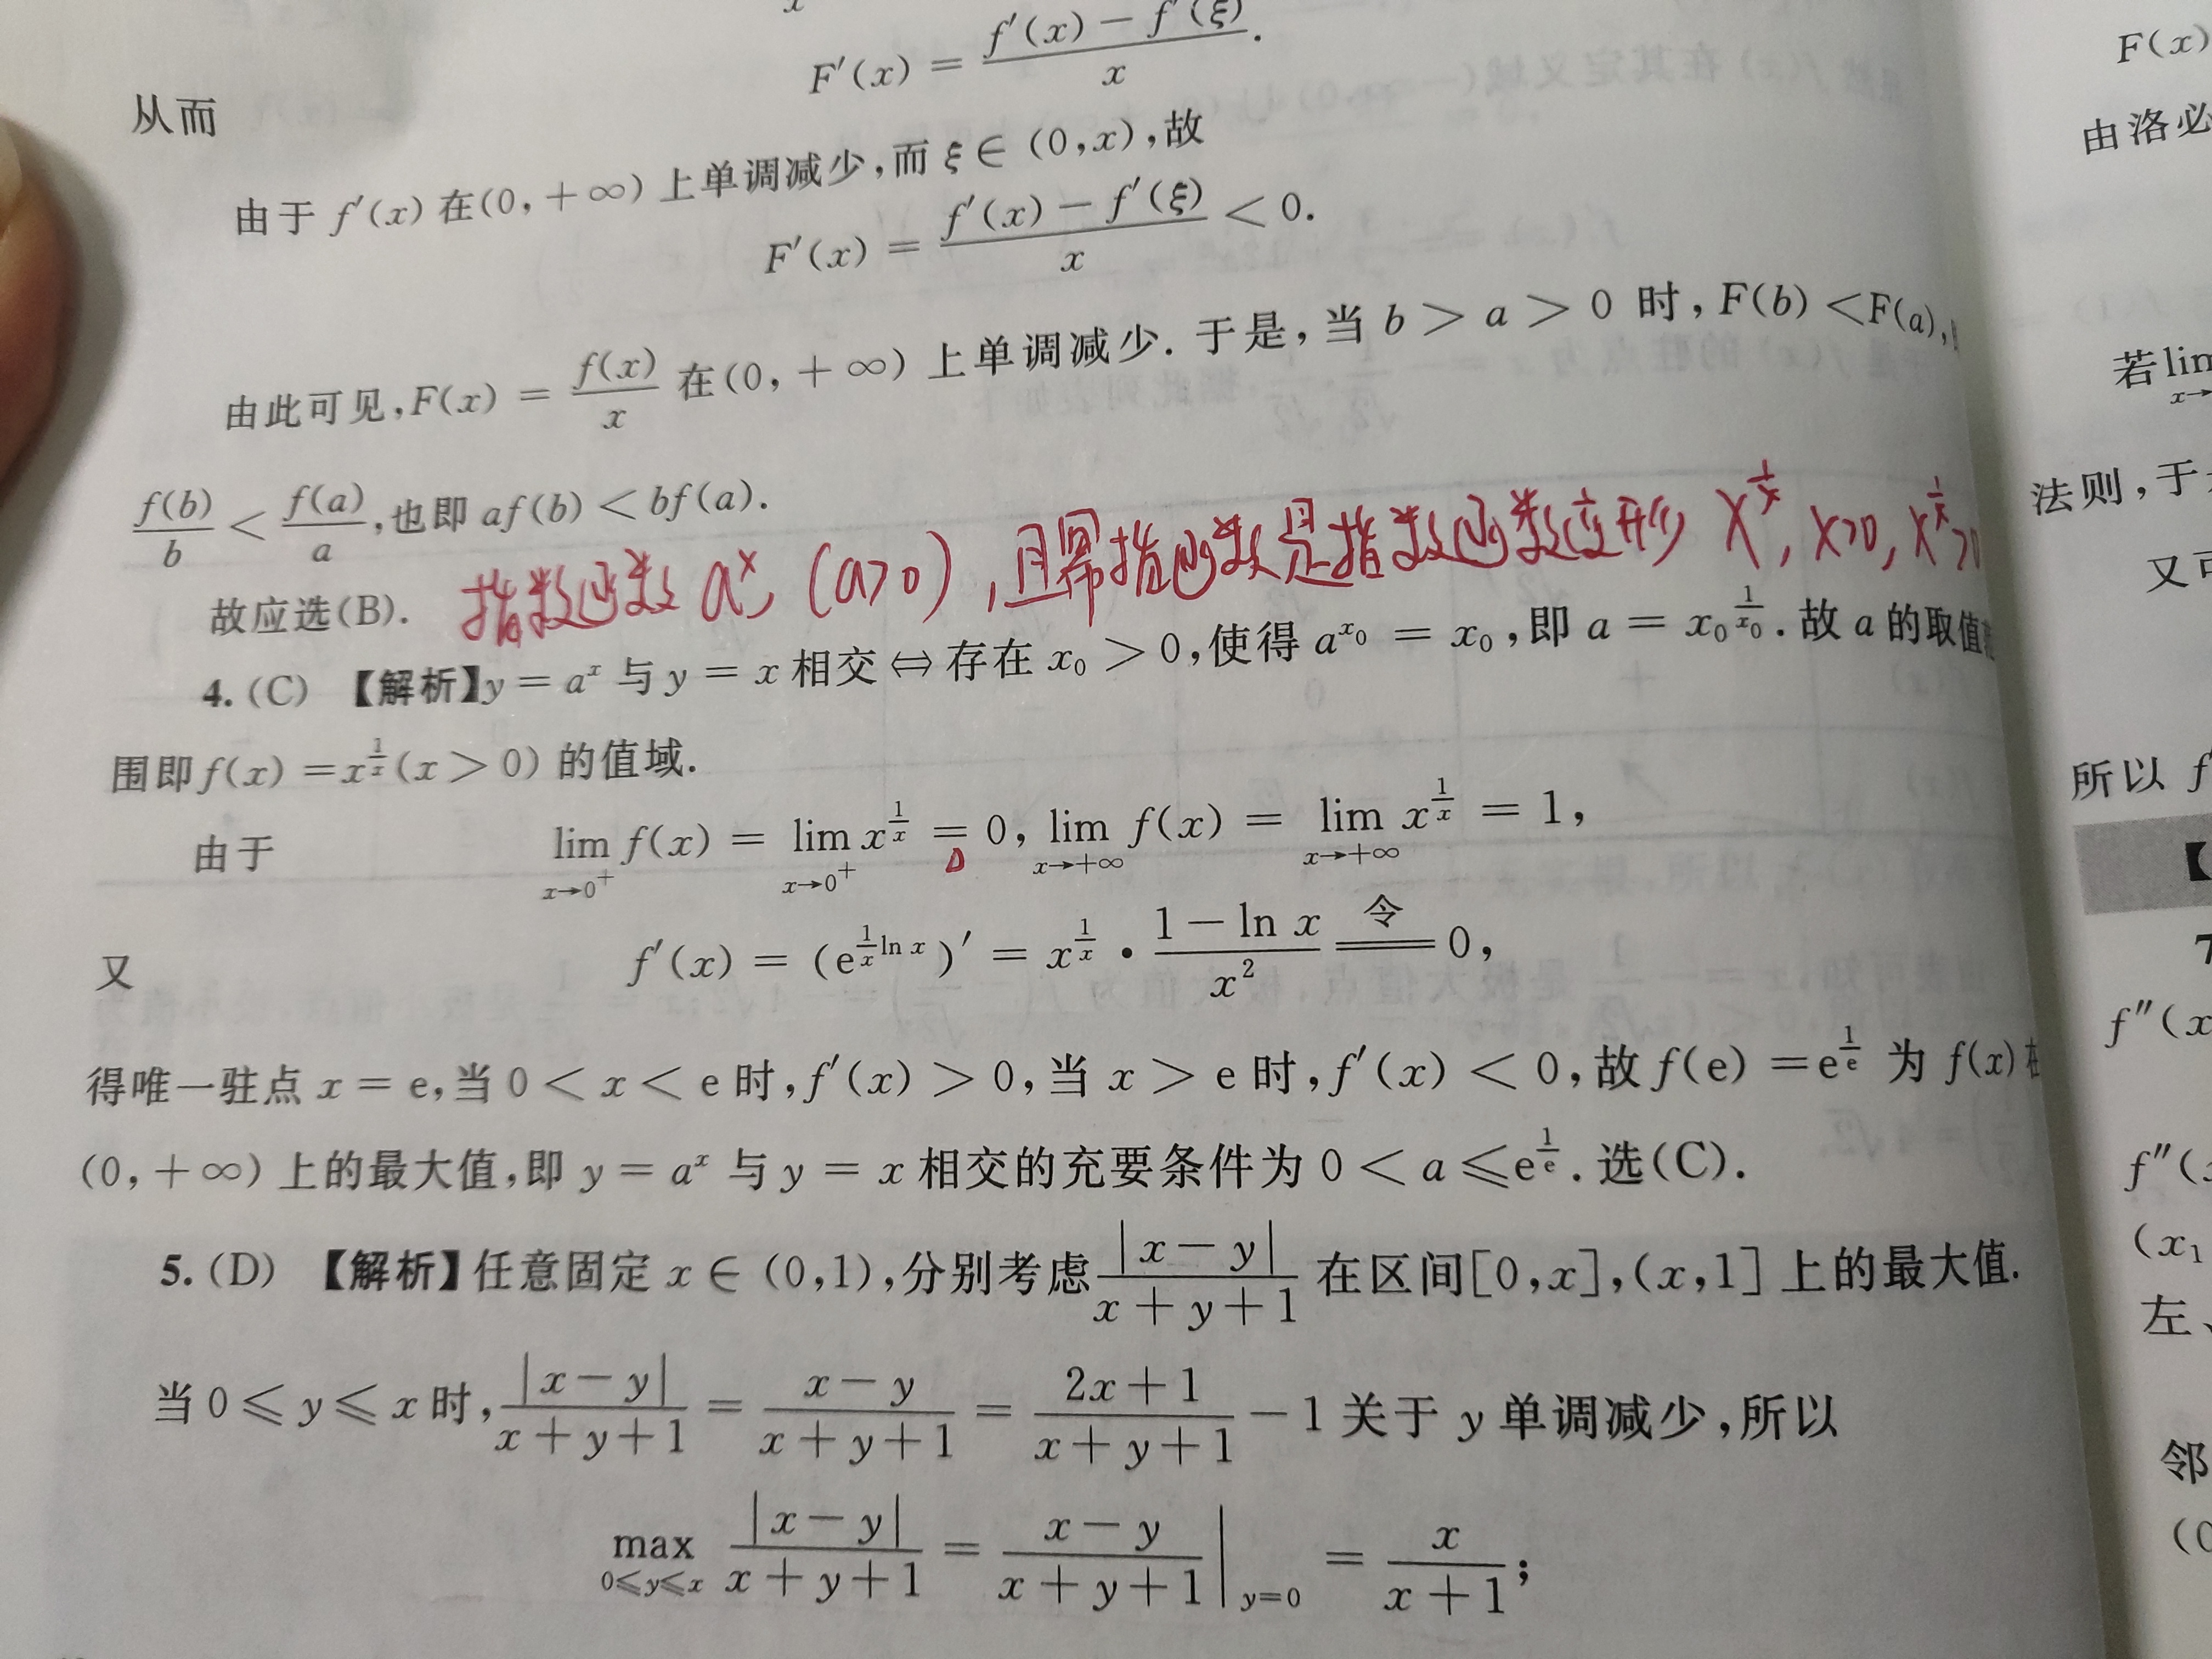 F′(x) = (f′(x) − f′(ξ))/x.
从而
由于 f′(x) 在(0, +∞) 上单调减少,而 ξ ∈ (0,x),故
F′(x) = (f′(x) − f′(ξ))/x < 0.
由此可见,F(x) = f(x)/x 在(0, +∞) 上单调减少. 于是, 当 b > a > 0 时, F(b) < F(a),
f(b)/b < f(a)/a,也即 af(b) < bf(a).
指数函数 a^x, (a>0), 且幂指函数是指数函数变形 x^(1/x), x>0, x^(1/x)>0
故应选(B).
4. (C) 【解析】y = a^x 与 y = x 相交 ⇔ 存在 x₀ > 0,使得 a^(x₀) = x₀,即 a = x₀^(1/x₀). 故 a 的取值
围即 f(x) = x^(1/x) (x > 0) 的值域.
由于 lim_(x→0⁺) f(x) = lim_(x→0⁺) x^(1/x) = 0, lim_(x→+∞) f(x) = lim_(x→+∞) x^(1/x) = 1,
又 f′(x) = (e^((1/x)ln x))′ = x^(1/x) · (1 − ln x)/x² ══令══ 0,
得唯一驻点 x = e,当 0 < x < e 时,f′(x) > 0,当 x > e 时,f′(x) < 0,故 f(e) = e^(1/e) 为 f(x) 在
(0, +∞) 上的最大值,即 y = a^x 与 y = x 相交的充要条件为 0 < a ⩽ e^(1/e). 选(C).
5. (D) 【解析】任意固定 x ∈ (0,1),分别考虑 |x − y|/(x + y + 1) 在区间[0,x],(x,1] 上的最大值.
当 0 ⩽ y ⩽ x 时, |x − y|/(x + y + 1) = (x − y)/(x + y + 1) = (2x + 1)/(x + y + 1) − 1 关于 y 单调减少,所以
max_(0⩽y⩽x) |x − y|/(x + y + 1) = (x − y)/(x + y + 1) |_(y=0) = x/(x + 1);
F(x)
由洛必
若 lim
x→
法则,于
又可
所以 f
【
7
f″(x
f″(
(x₁
左、
邻
(0